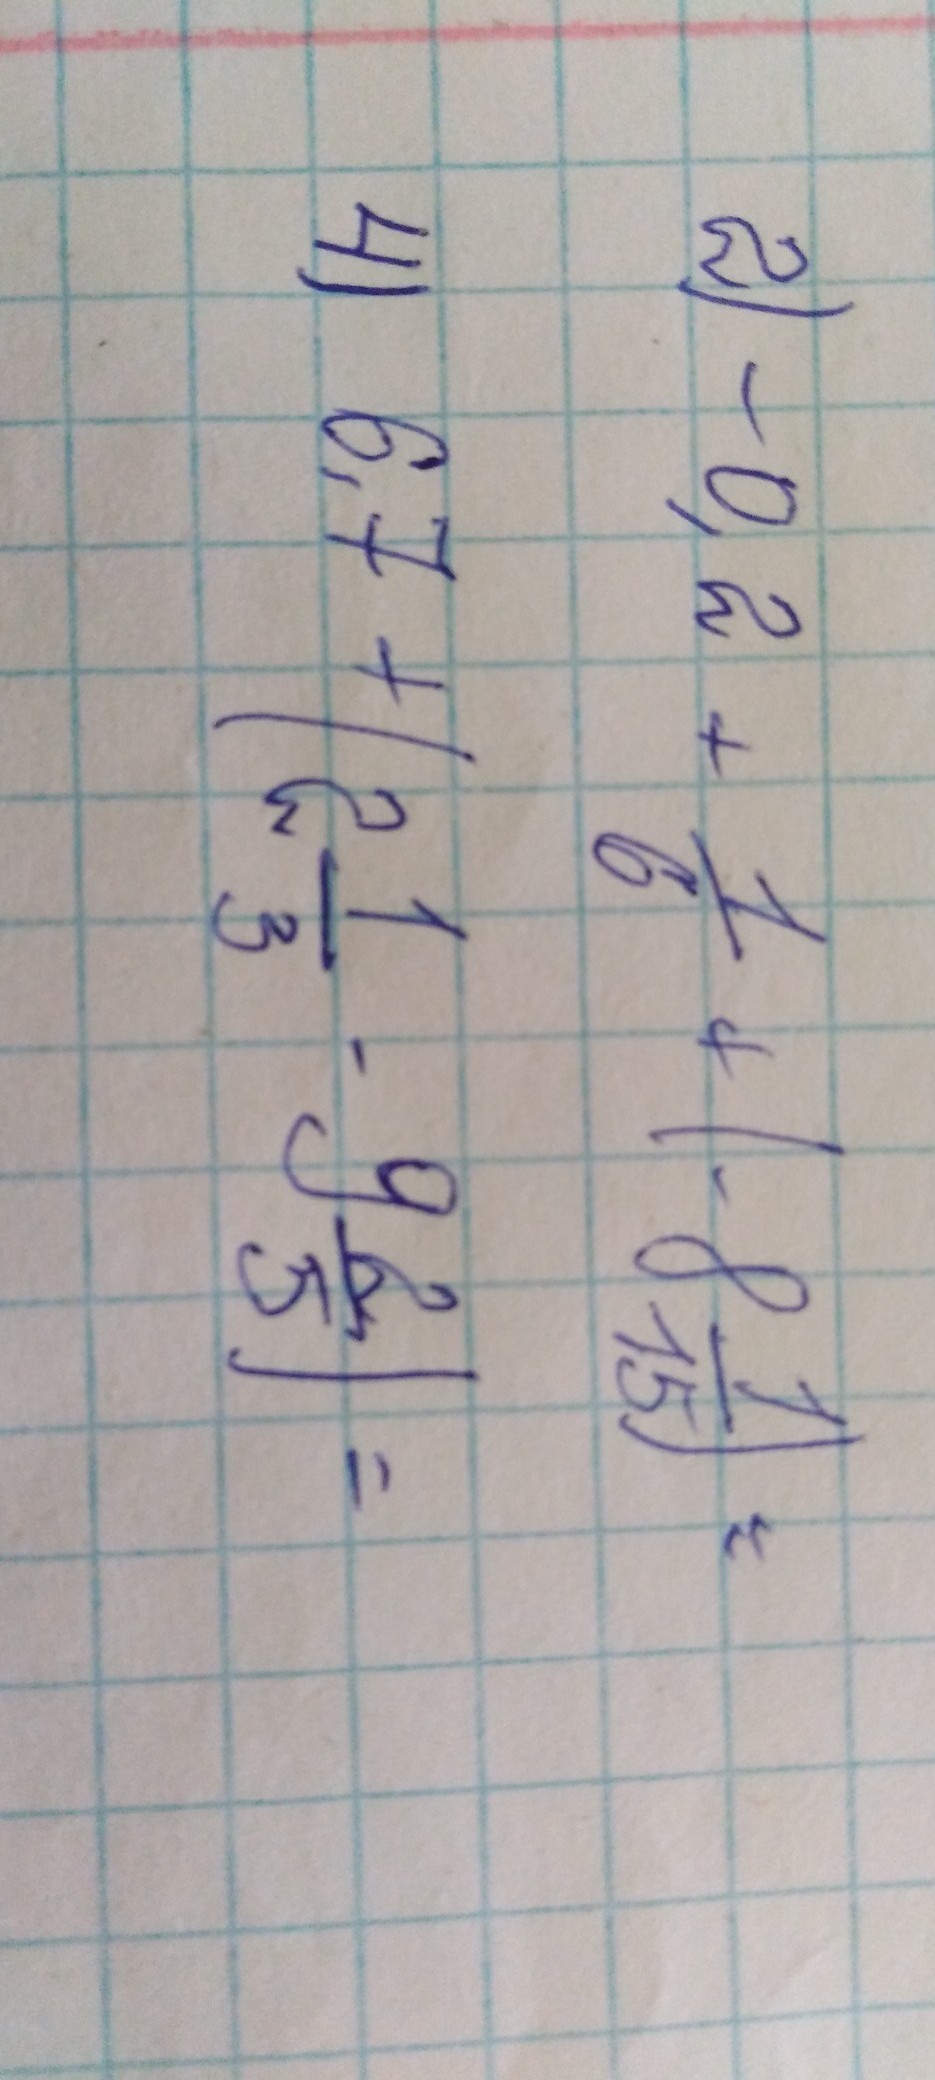 2) -0,2 + 1/6 + (-8 1/15) =
4) 6,7 + (2 1/3 - 9 2/5) =